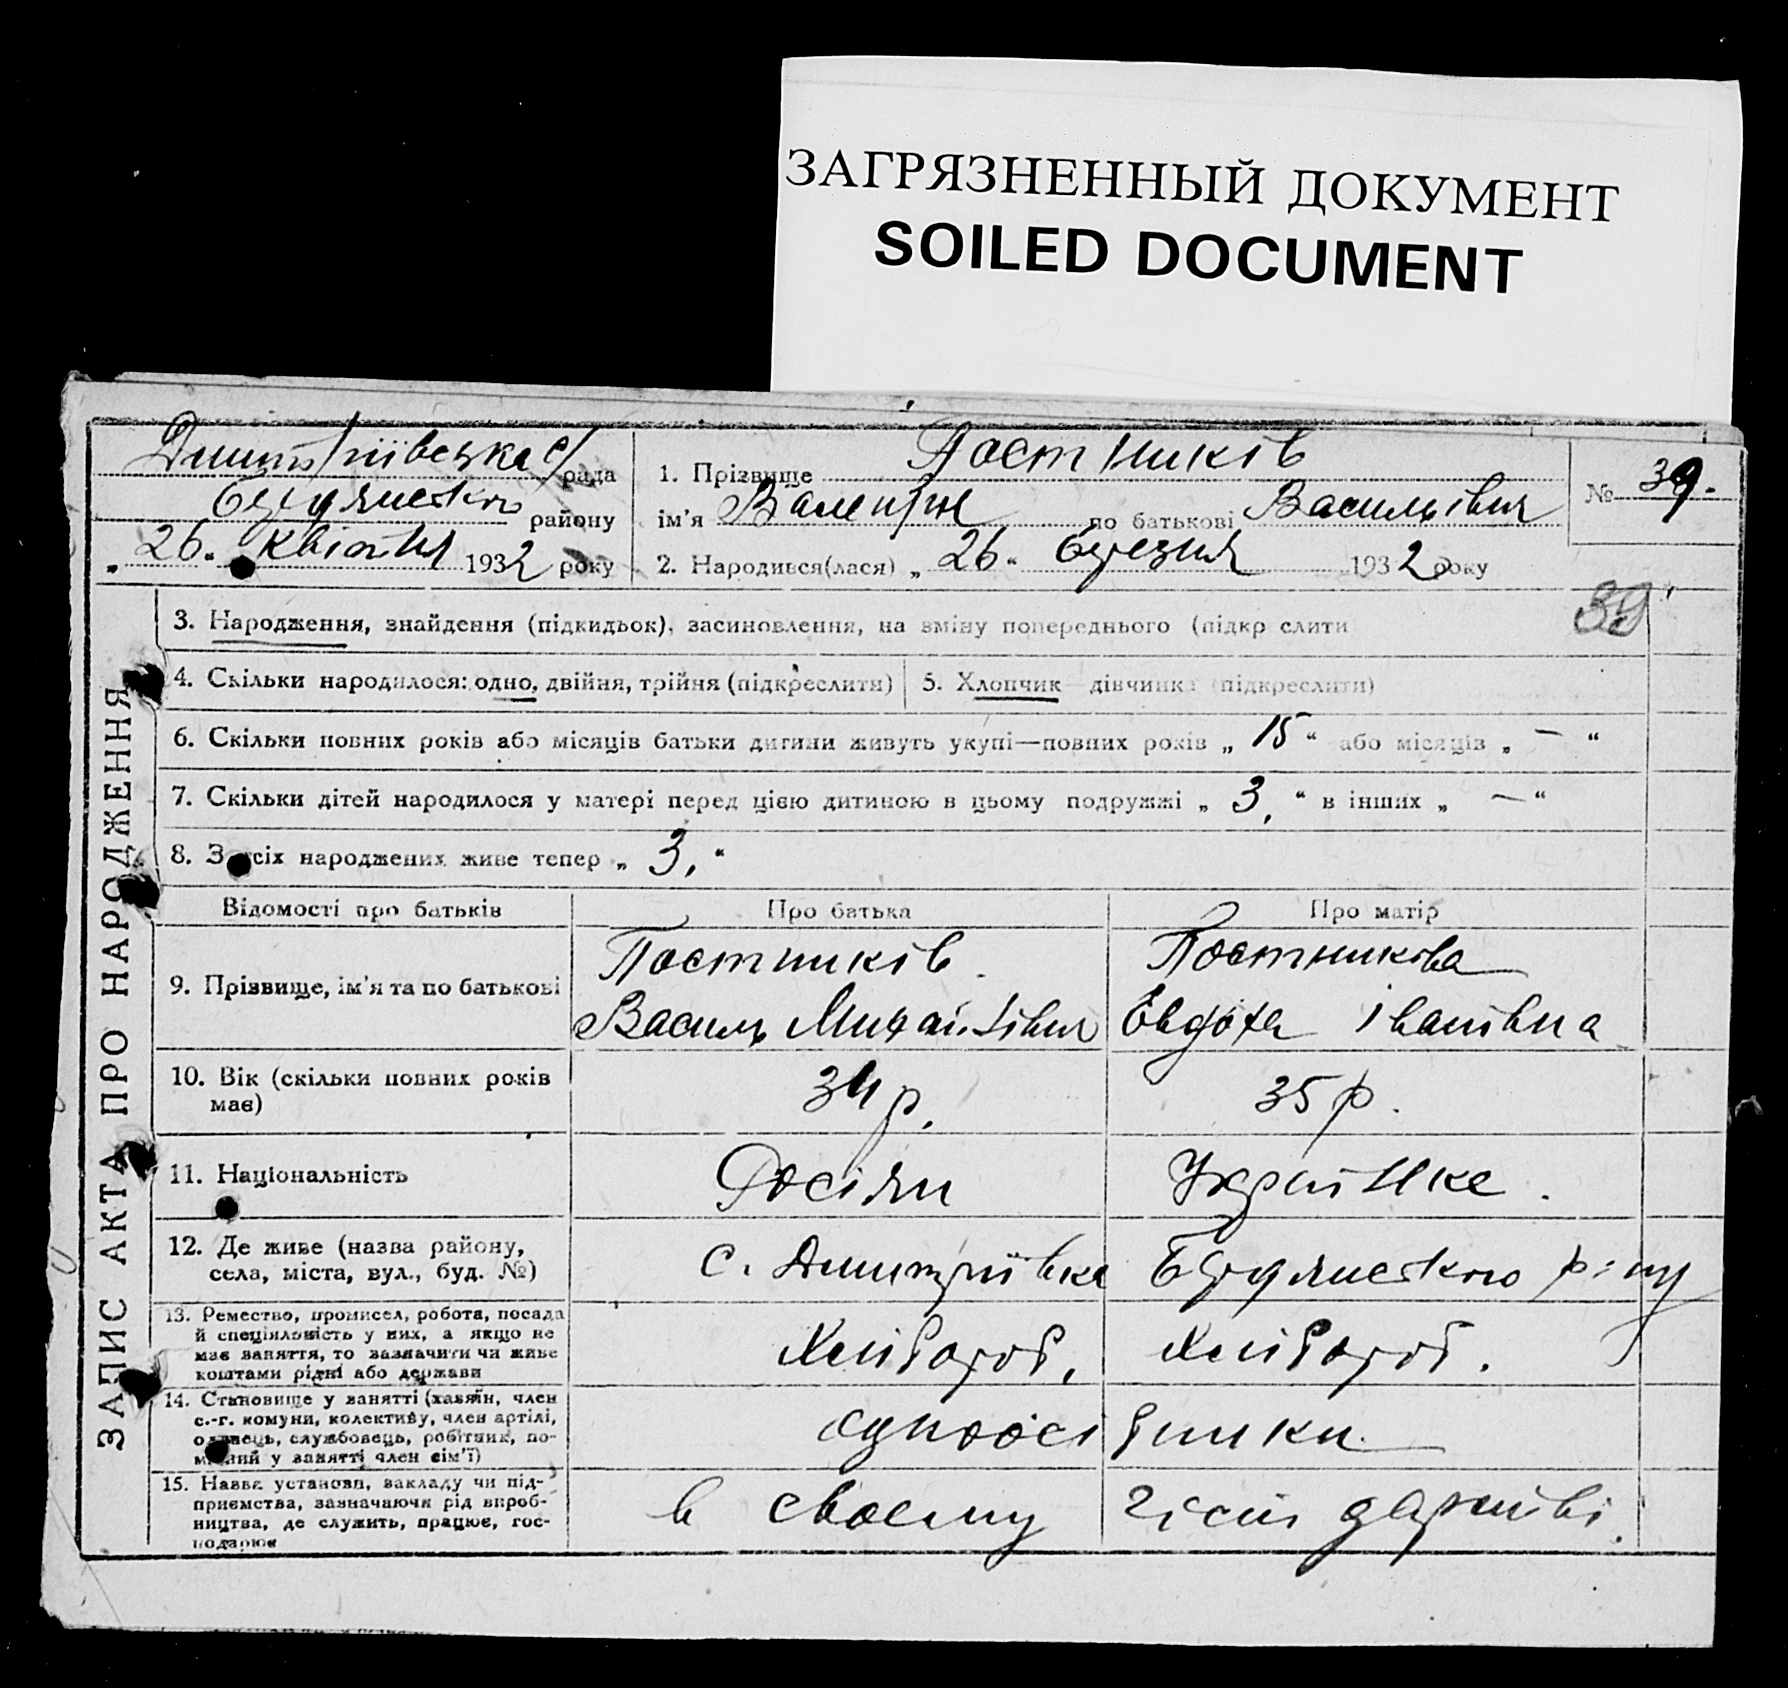 ЗАГРЯЗНЕННЫЙ ДОКУМЕНТ
SOILED DOCUMENT
Дмитріївська с/рада
району
„26“ квітня 1932 року
1. Прізвище Постніків
ім'я Валентин по батькові Васильівич
2. Народився(лася) „26“ березня 1932 року
№ 39.
39
ЗАПИС АКТА ПРО НАРОДЖЕННЯ
3. Народження, знайдення (підкидьок), засиновлення, на зміну попереднього (підкр слити
4. Скільки народилося: одно, двійня, трійня (підкреслити)
5. Хлопчик дівчинка (підкреслити)
6. Скільки повних років або місяців батьки дитини живуть укупі—повних років „15“ або місяців „—“
7. Скільки дітей народилося у матері перед цією дитиною в цьому подружжі „3.“ в інших „—“
8. З усіх народжених живе тепер „3.“
Відомості про батьків Про батька Про матір
9. Прізвище, ім'я та по батькові
Постників
Василь Михайлівич
Постникова
Евдоха Іванівна
10. Вік (скільки повних років
має)
34 р.
35 р.
11. Національність
Росіян
Українка.
12. Де живе (назва району,
села, міста, вул., буд. №)
с. Дмитріївка
13. Ремество, промисел, робота, посада
й спеціяльність у них, а якщо не
має заняття, то зазначити чи живе
коштами рідні або держави
Хлібороб,
Хлібороб.
14. Становище у занятті (хазяїн, член
с.-г. комуни, колективу, член артілі,
одинець, службовець, робітник, по-
мічний у занятті член сім'ї)
одноосібники
15. Назва установи, закладу чи під-
приємства, зазначаючи рід вироб-
ництва, де служить, працює, гос-
подарює
в своєму